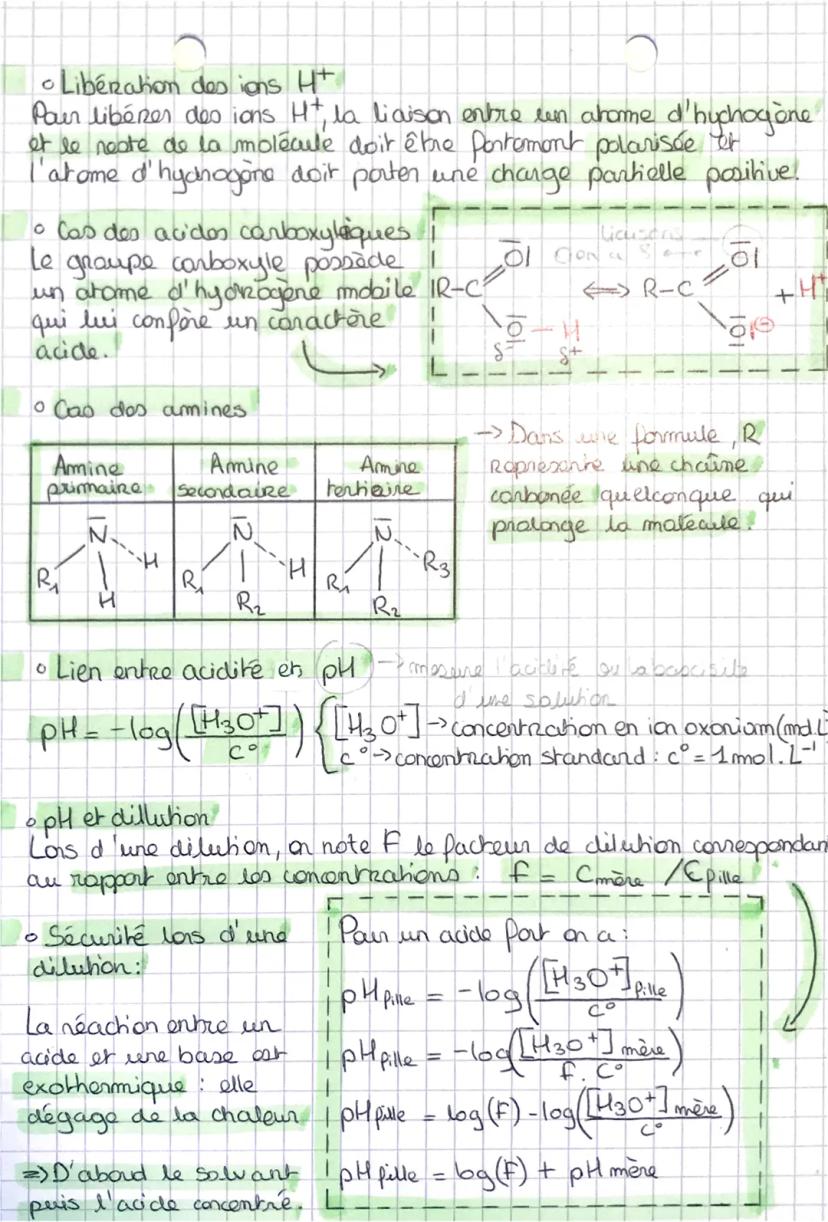 ° Libération des ions H+
Pour libérer des ions H+, la liaison entre un atome d'hydrogène
et le reste de la molécule doit être fortement polarisée et
l'atome d'hydrogène doit porter une charge partielle positive.
° Cas des acides carboxyliques
Le groupe carboxyle possède
un atome d'hydrogène mobile
qui lui confère un caractère
acide.
liaisons
O| O|
R-C ⇔ R-C + H+
O - H O|⊖
δ- δ+
° Cas des amines
Amine primaire Amine secondaire Amine tertiaire
N N N
R1 H R1 H R1 R3
H R2 R2
→ Dans une formule, R
représente une chaîne
carbonée quelconque qui
prolonge la molécule.
° Lien entre acidité et pH → mesure l'acidité ou la basicité
d'une solution
pH = -log([H3O+]/c°) { [H3O+] → concentration en ion oxonium (mol.L
c° → concentration standard : c° = 1 mol.L-1
° pH et dillution
Lors d'une dilution, on note F le facteur de dilution correspondan
au rapport entre les concentrations : f = Cmère / Cfille
° Sécurité lors d'une
dilution :
La réaction entre un
acide et une base est
exothermique : elle
dégage de la chaleur
=> D'abord le solvant
puis l'acide concentré.
Pour un acide fort on a :
pH fille = -log([H3O+] fille / c°)
pH fille = -log([H3O+] mère / f. c°)
pH fille = log(F) - log([H3O+] mère / c°)
pH fille = log(F) + pH mère